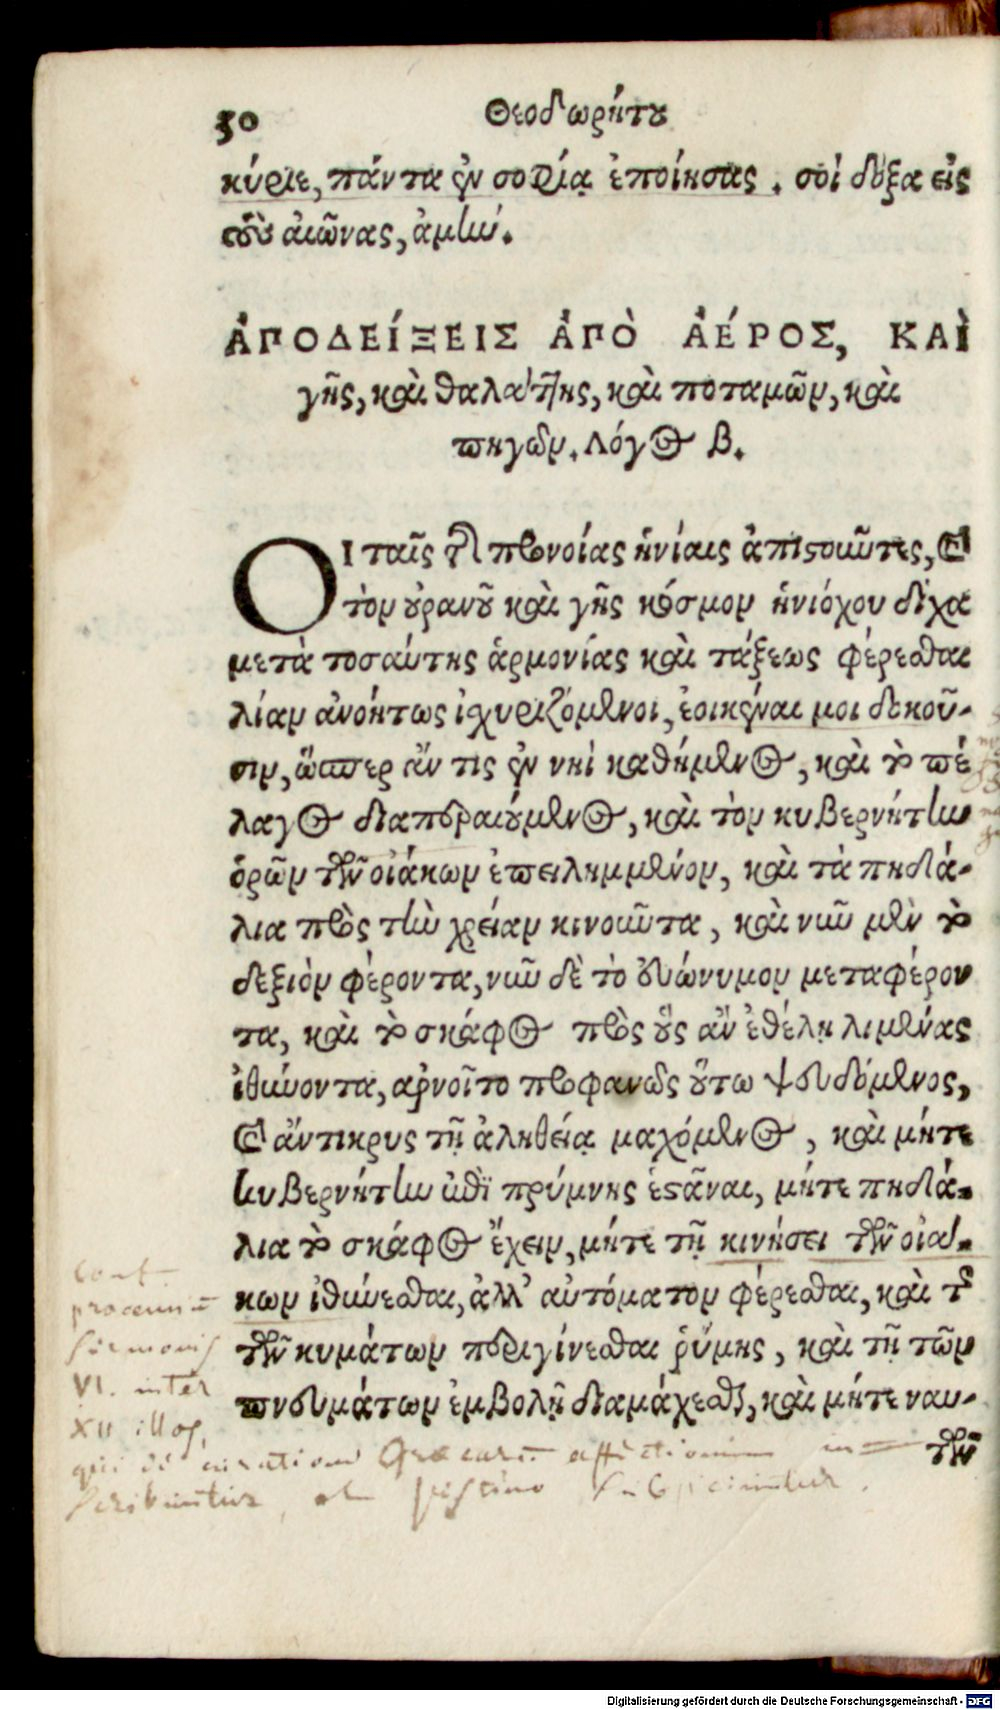 50 Θεοδωρήτου
κύριε, πάντα ἐν σοφίᾳ ἐποίησας. σοὶ δόξα εἰς
τοὺς αἰῶνας, ἀμήν.
ἈΠΟΔΕΊΞΕΙΣ ἈΠῸ ἈΈΡΟΣ, ΚΑῚ
γῆς, καὶ θαλάττης, καὶ ποταμῶν, καὶ
πηγῶν. Λόγος β.
Οἱ ταῖς τῆς προνοίας ἡνίαις ἀπιστοῦντες, καὶ
τὸν οὐρανοῦ καὶ γῆς κόσμον ἡνιόχου δίχα
μετὰ τοσαύτης ἁρμονίας καὶ τάξεως φέρεσθαι
λίαν ἀνοήτως ἰσχυριζόμενοι, ἐοικέναι μοι δοκοῦ-
σιν, ὥσπερ ἄν τις ἐν νηὶ καθήμενος, καὶ τὸ πέ
λαγος διαπεραιούμενος, καὶ τὸν κυβερνήτην
ὁρῶν τῶν οἰάκων ἐπειλημμένον, καὶ τὰ πηδά-
λια πρὸς τὴν χρείαν κινοῦντα, καὶ νῦν μὲν τὸ
δεξιὸν φέροντα, νῦν δὲ τὸ εὐώνυμον μεταφέρον
τα, καὶ τὸ σκάφος πρὸς οὓς ἂν ἐθέλῃ λιμένας
ἰθύνοντα, ἀρνοῖτο προφανῶς οὕτω ψευδόμενος,
καὶ ἄντικρυς τῇ ἀληθείᾳ μαχόμενος, καὶ μήτε
κυβερνήτην ἐπὶ πρύμνης ἑστᾶναι, μήτε πηδά-
λια τὸ σκάφος ἔχειν, μήτε τῇ κινήσει τῶν οἰά-
κων ἰθύνεσθαι, ἀλλ' αὐτόματον φέρεσθαι, καὶ τῆς
τῶν κυμάτων περιγίνεσθαι ῥύμης, καὶ τῇ τῶν
πνευμάτων ἐμβολῇ διαμάχεσθαι, καὶ μήτε ναυ-
τῶν
VI. inter
XII illos,
Digitalisierung gefördert durch die Deutsche Forschungsgemeinschaft - DFG